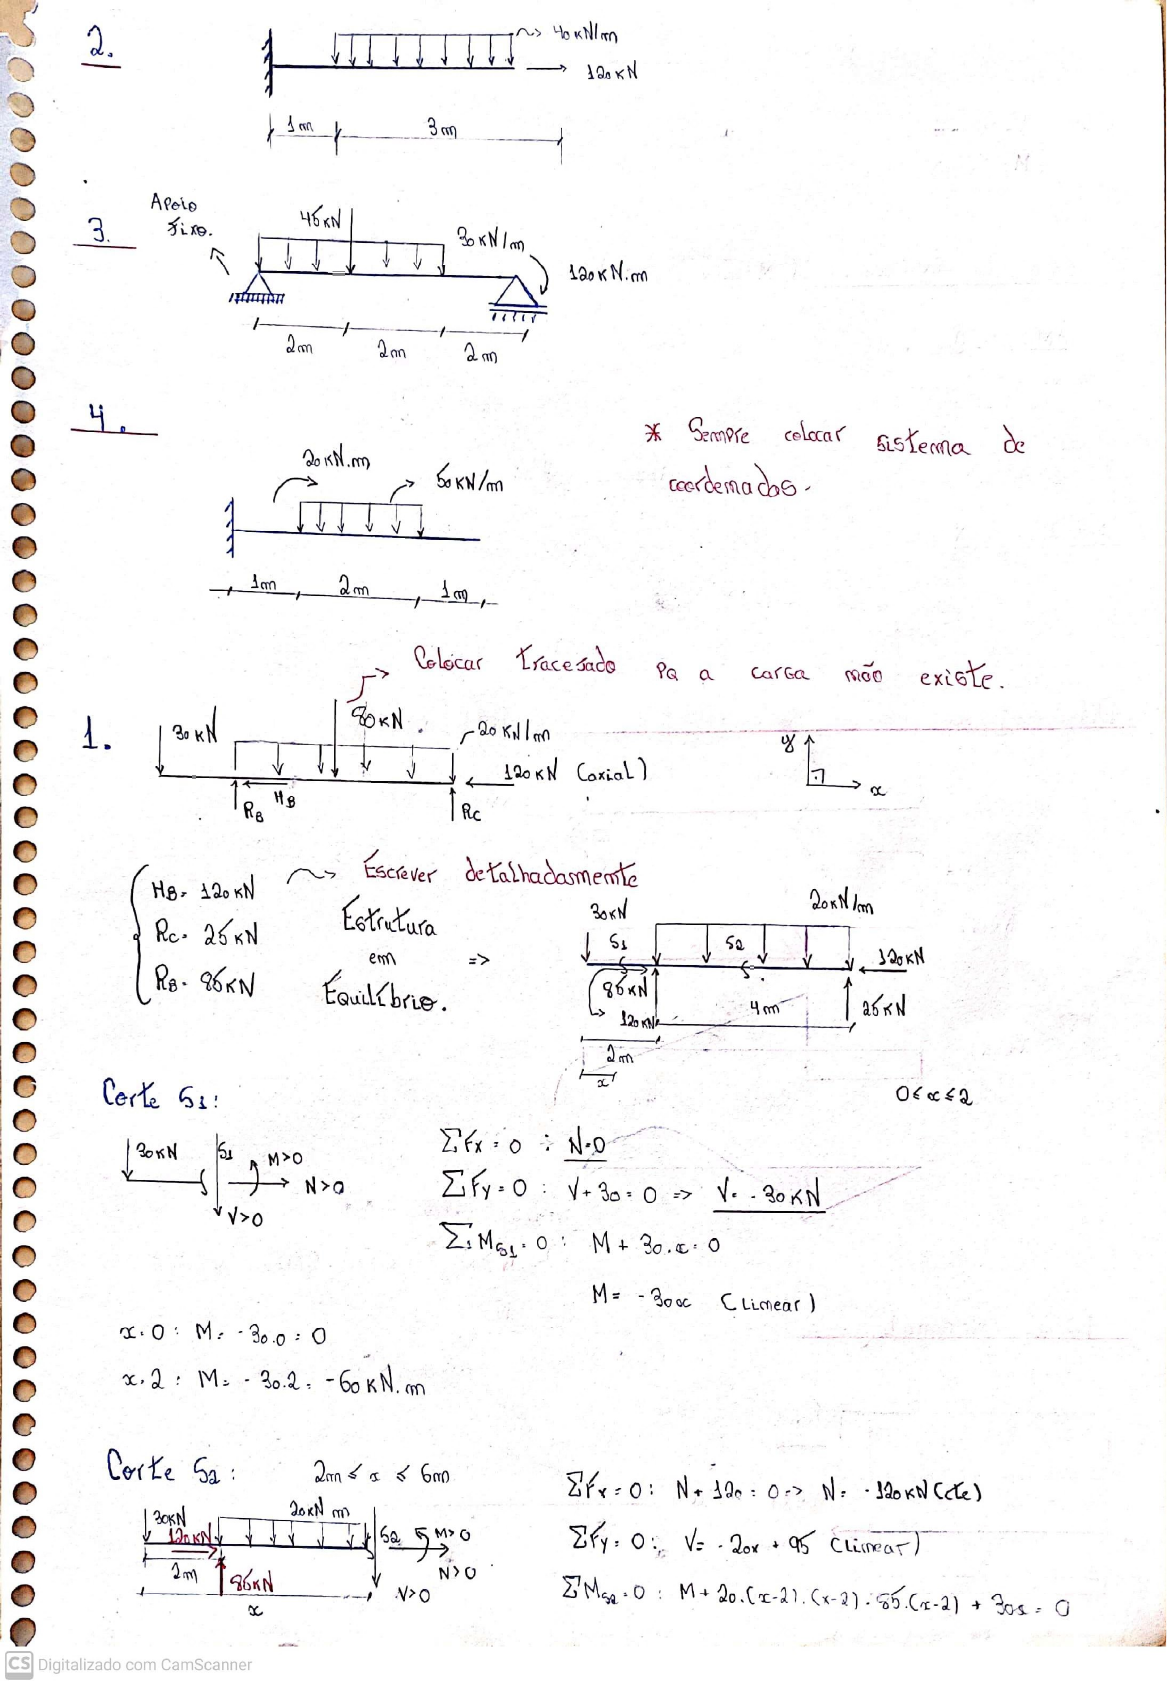 2.
40 kN/m
120 kN
1m
3m
Apoio
fixo.
3.
45 kN
30 kN/m
120 kN.m
2m
2m
2m
4.
20 kN.m
50 kN/m
* Sempre colocar sistema de
coordenadas.
1m
2m
1m
Colocar tracejado pq a carga não existe.
1.
30 kN
80 kN
20 kN/m
120 kN (axial)
y
x
RB
HB
RC
HB = 120 kN
Escrever detalhadasmente
RC = 25 kN
RB = 85 kN
Estrutura
em
Equilíbrio.
=>
30 kN
20 kN/m
S1
S2
120 kN
85 kN
120 kN
4m
25 kN
2m
x
0 ≤ x ≤ 2
Corte S1:
30 kN
S1
M>0
N>0
V>0
ΣFx = 0 ∴ N=0
ΣFy = 0 : V + 30 = 0 => V = -30 kN
ΣMS1 = 0 : M + 30.x = 0
M = -30x (Linear)
x = 0 : M = -30.0 = 0
x = 2 : M = -30.2 = -60 kN.m
Corte S2 : 2m ≤ x ≤ 6m
30kN
120kN
20kN m
S2
M>0
N>0
V>0
2m
85kN
x
ΣFx = 0 : N + 120 = 0 => N = -120 kN (cte)
ΣFy = 0 : V = -20x + 95 (Linear)
ΣMS2 = 0 : M + 20.(x-2).(x-2) - 85.(x-2) + 30x = 0
CS Digitalizado com CamScanner